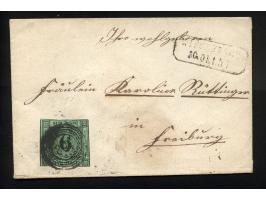 Ihro wohlgeboren
Fräulein Karoline Rüttinger
in
Freiburg
6